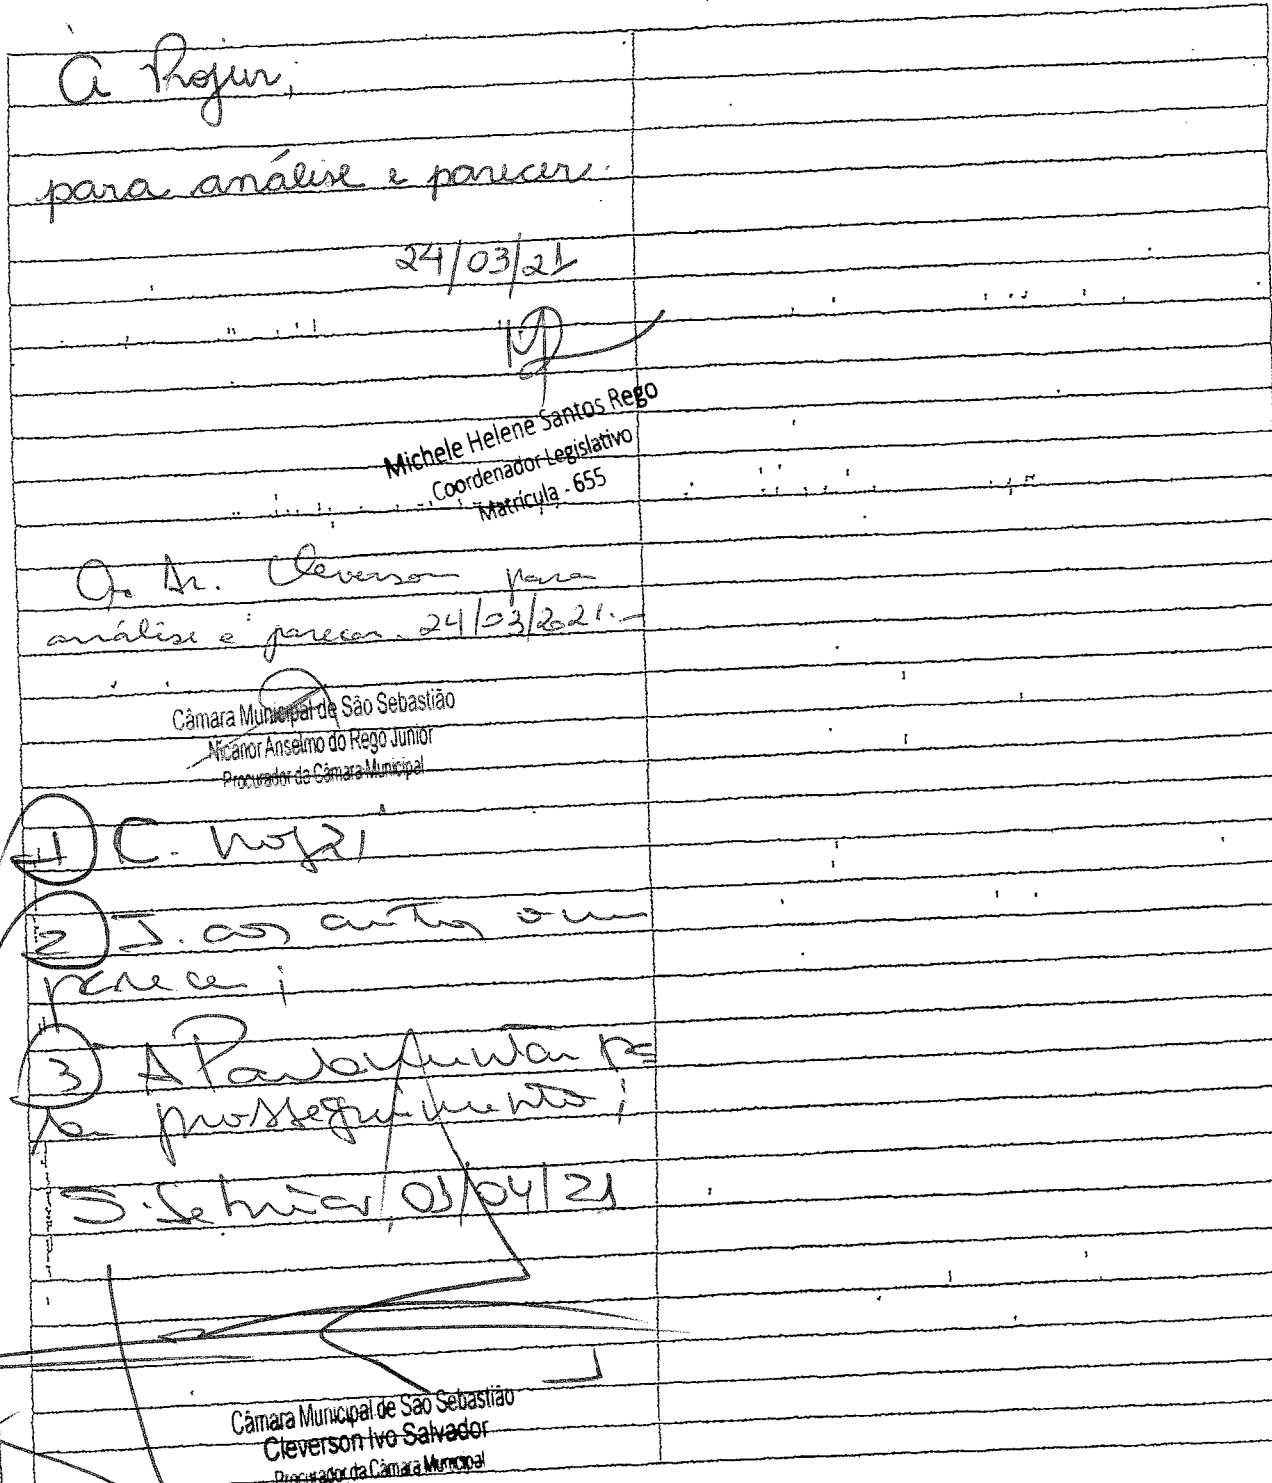 À Projur,
para análise e parecer.
24/03/21
Michele Helene Santos Rego
Coordenador Legislativo
Matrícula - 655
Ao Dr. Cleverson para
análise e parecer. 24/03/2021.-
Câmara Municipal de São Sebastião
Nicanor Anselmo do Rego Junior
Procurador da Câmara Municipal
1 C.
2 J. aos autos o
parecer;
3 A
prosseguimento;
S. Sebastião, 01/04/21
Câmara Municipal de São Sebastião
Cleverson Ivo Salvador
Procurador da Câmara Municipal